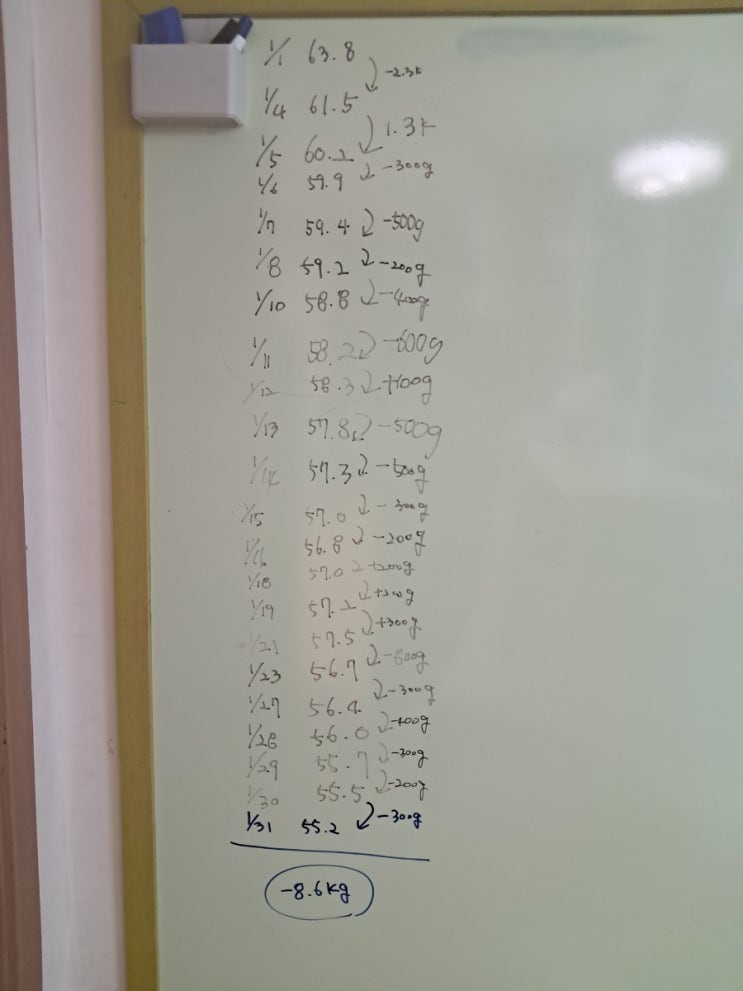 1/1 63.8
-2.3k
1/4 61.5
1.3k
1/5 60.2
1/6 59.9 -300g
1/7 59.4 -500g
1/8 59.2 -200g
1/10 58.8 -400g
1/11 58.2 -600g
1/12 58.3 +100g
1/13 57.8 -500g
1/14 57.3 -500g
1/15 57.0 -300g
1/16 56.8 -200g
1/18 57.0 +200g
1/19 57.2 +200g
1/21 57.5 +300g
1/23 56.7 -800g
1/27 56.4 -300g
1/28 56.0 -400g
1/29 55.7 -300g
1/30 55.5 -200g
1/31 55.2 -300g
-8.6kg